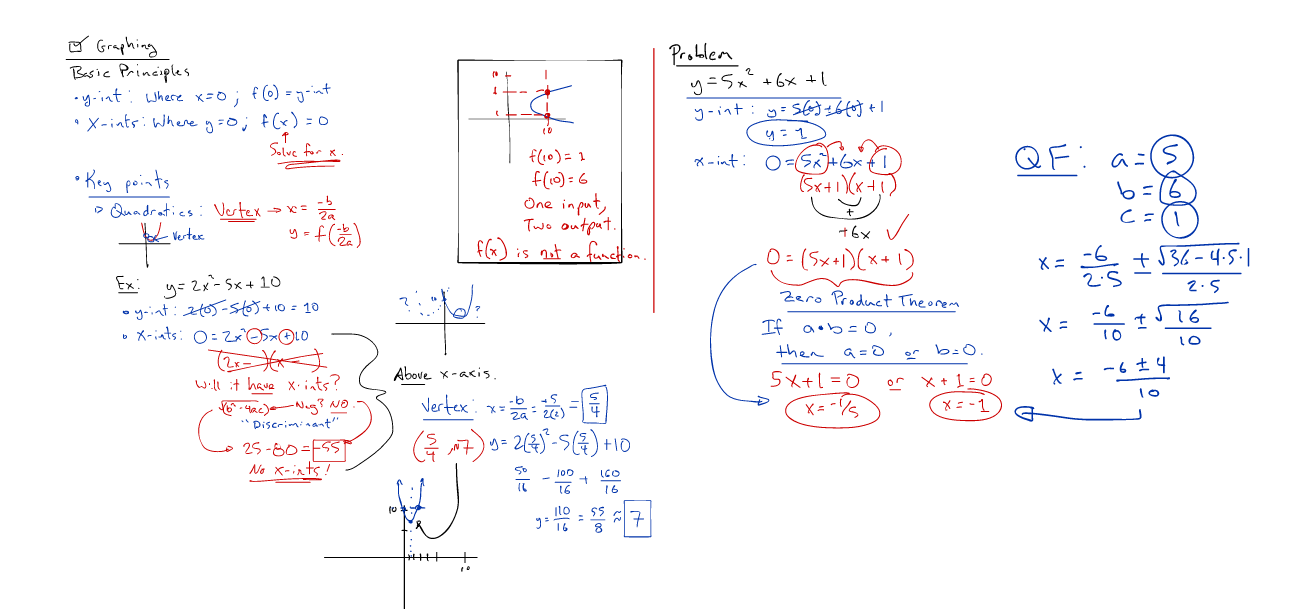 ☑ Graphing
Basic Principles
• y-int: Where x=0; f(0) = y-int
• X-ints: Where y=0; f(x) = 0
↑
Solve for x.
• Key points
▹ Quadratics: Vertex → x = -b/2a
y = f(-b/2a)
Vertex
Ex: y = 2x² - 5x + 10
• y-int: 2(0) - 5(0) + 10 = 10
• X-ints: 0 = 2x² - 5x + 10
(2x - )(x - )
Will it have x-ints?
√(b² - 4ac) ← Neg? NO.
"Discriminant"
25 - 80 = -55
No x-ints!
10
1
10
f(10) = 1
f(10) = 6
One input,
Two output.
f(x) is not a function.
? ?
Above x-axis.
Vertex: x = -b/2a = +5/2(2) = 5/4
(5/4, ~7) y = 2(5/4)² - 5(5/4) + 10
50/16 - 100/16 + 160/16
y = 110/16 = 55/8 ≈ 7
10
10
Problem
y = 5x² + 6x + 1
y-int: y = 5(0) + 6(0) + 1
y = 1
x-int: 0 = 5x² + 6x + 1
(5x+1)(x+1)
+
+6x ✓
0 = (5x+1)(x+1)
Zero Product Theorem
If a•b = 0,
then a=0 or b=0.
5x+1 = 0 or x+1 = 0
x = -1/5 x = -1
QF: a = 5
b = 6
c = 1
x = -6/2·5 ± √36-4·5·1/2·5
x = -6/10 ± √16/10
x = -6 ± 4/10